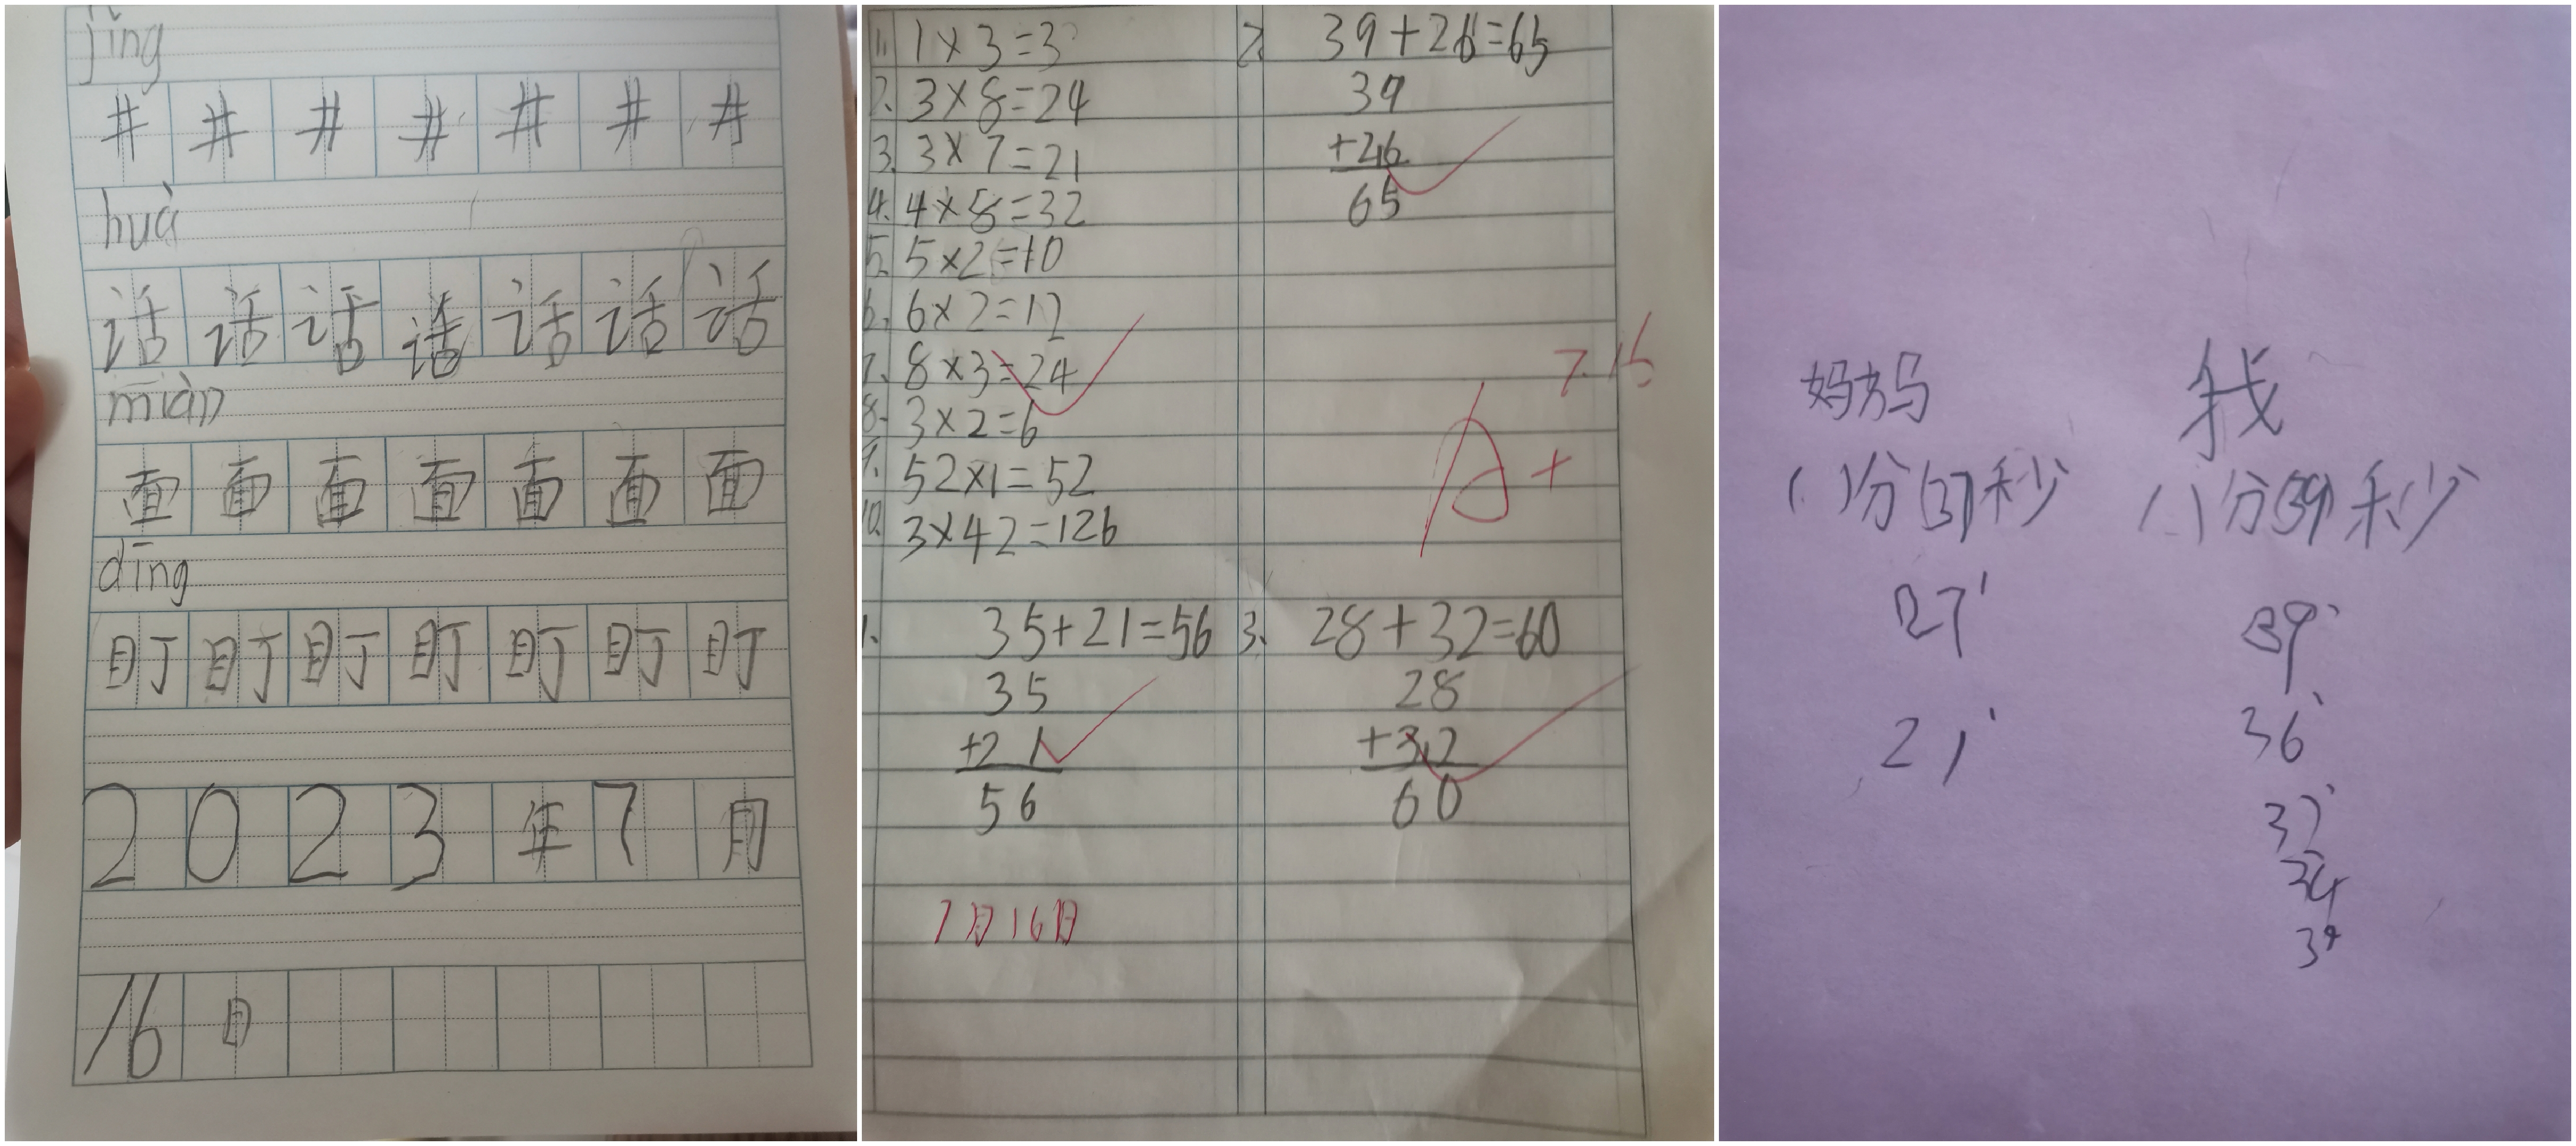 jǐng
井 井 井 井 井 井 井
huà
话 话 话 话 话 话 话
miàn
面 面 面 面 面 面 面
dīng
盯 盯 盯 盯 盯 盯 盯
2 0 2 3 年 7 月
16 日
1. 1×3=3
2. 3×8=24
3. 3×7=21
4. 4×8=32
5. 5×2=10
6. 6×2=12
7. 8×3=24
8. 3×2=6
9. 52×1=52
10. 3×42=126
2. 39+26=65
39
+26
65
7.16
A+
1. 35+21=56
35
+21
56
3. 28+32=60
28
+32
60
7月16日
妈妈
( )分(37)秒
27
21
我
( )分(39)秒
39
36
37
34